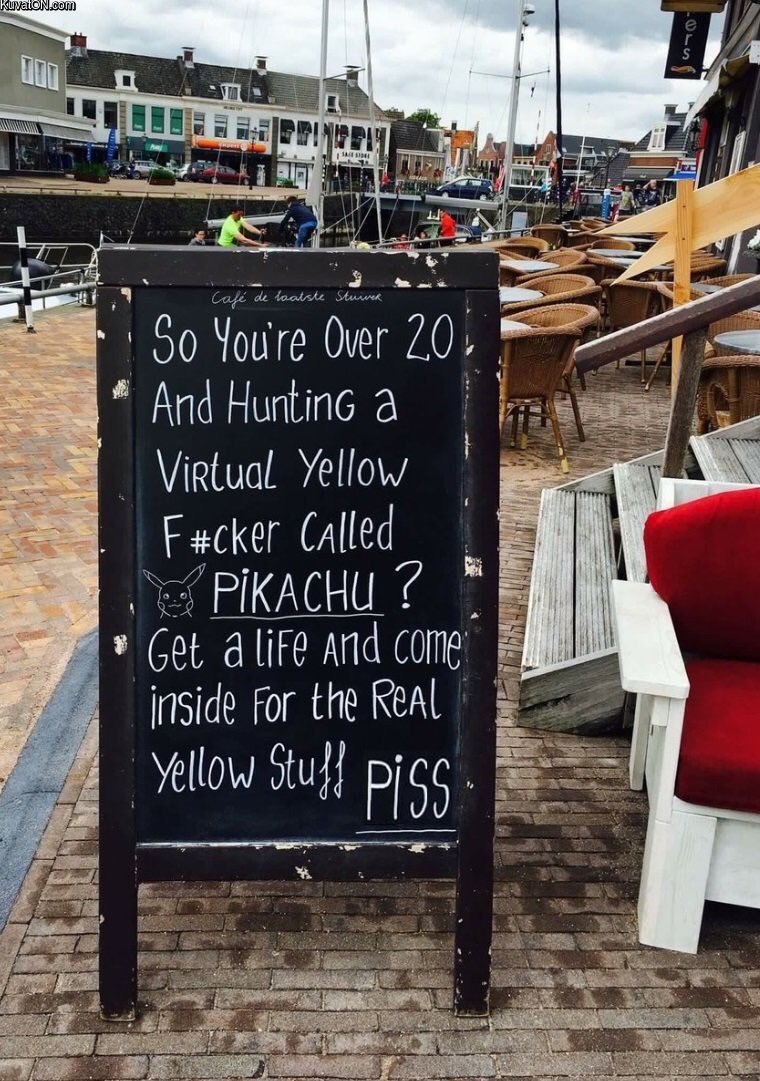 KuvatON.com
ers
Café de laatste Stuiver
So You're Over 20
And Hunting a
Virtual Yellow
F#cker Called
PiKACHU ?
Get a life And come
inside For the Real
Yellow Stuff PiSS